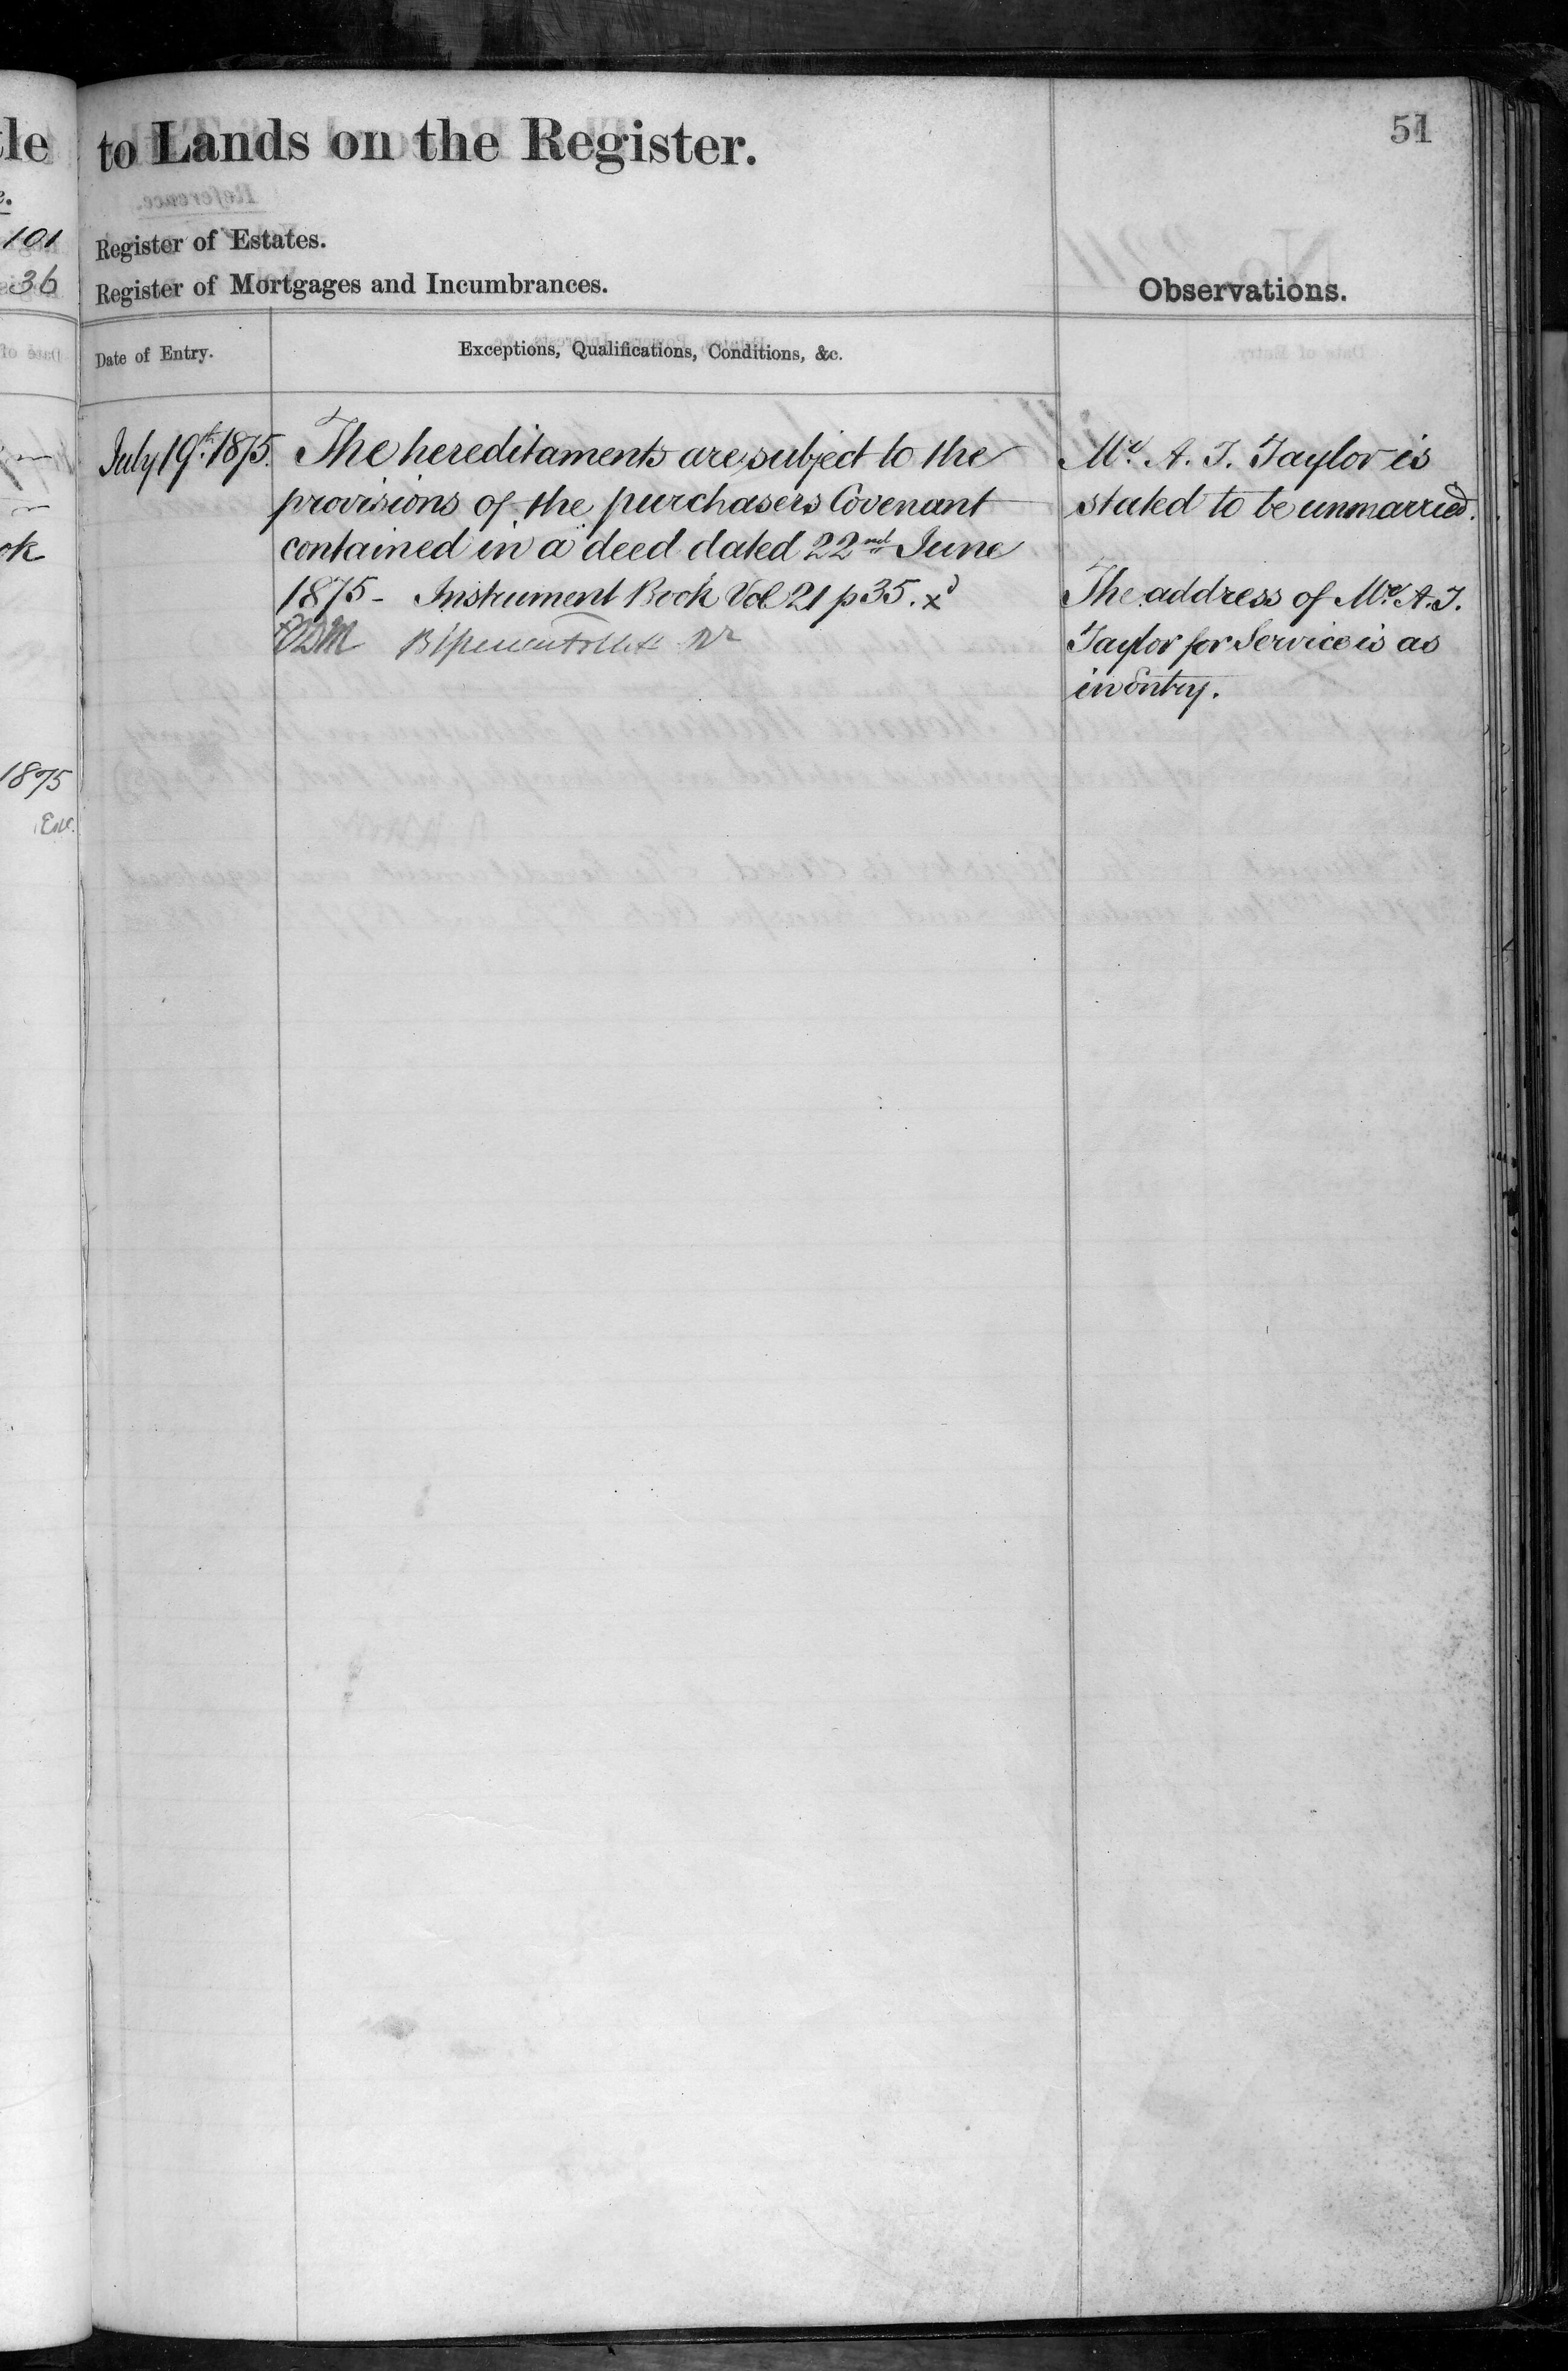 tle
to Lands on the Register.
51
101
Register of Estates.
36
Register of Mortgages and Incumbrances.
Observations.
Date of Entry.
Exceptions, Qualifications, Conditions, &c.
July 19th 1875.
The hereditaments are subject to the
provisions of the purchasers Covenant
contained in a deed dated 22nd June
1875 - Instrument Book Vol 21 p 35. xd
Mr. A. J. Taylor is
stated to be unmarried.
The address of Mr. A. J.
Taylor for Service is as
in Entry.
ok
1875